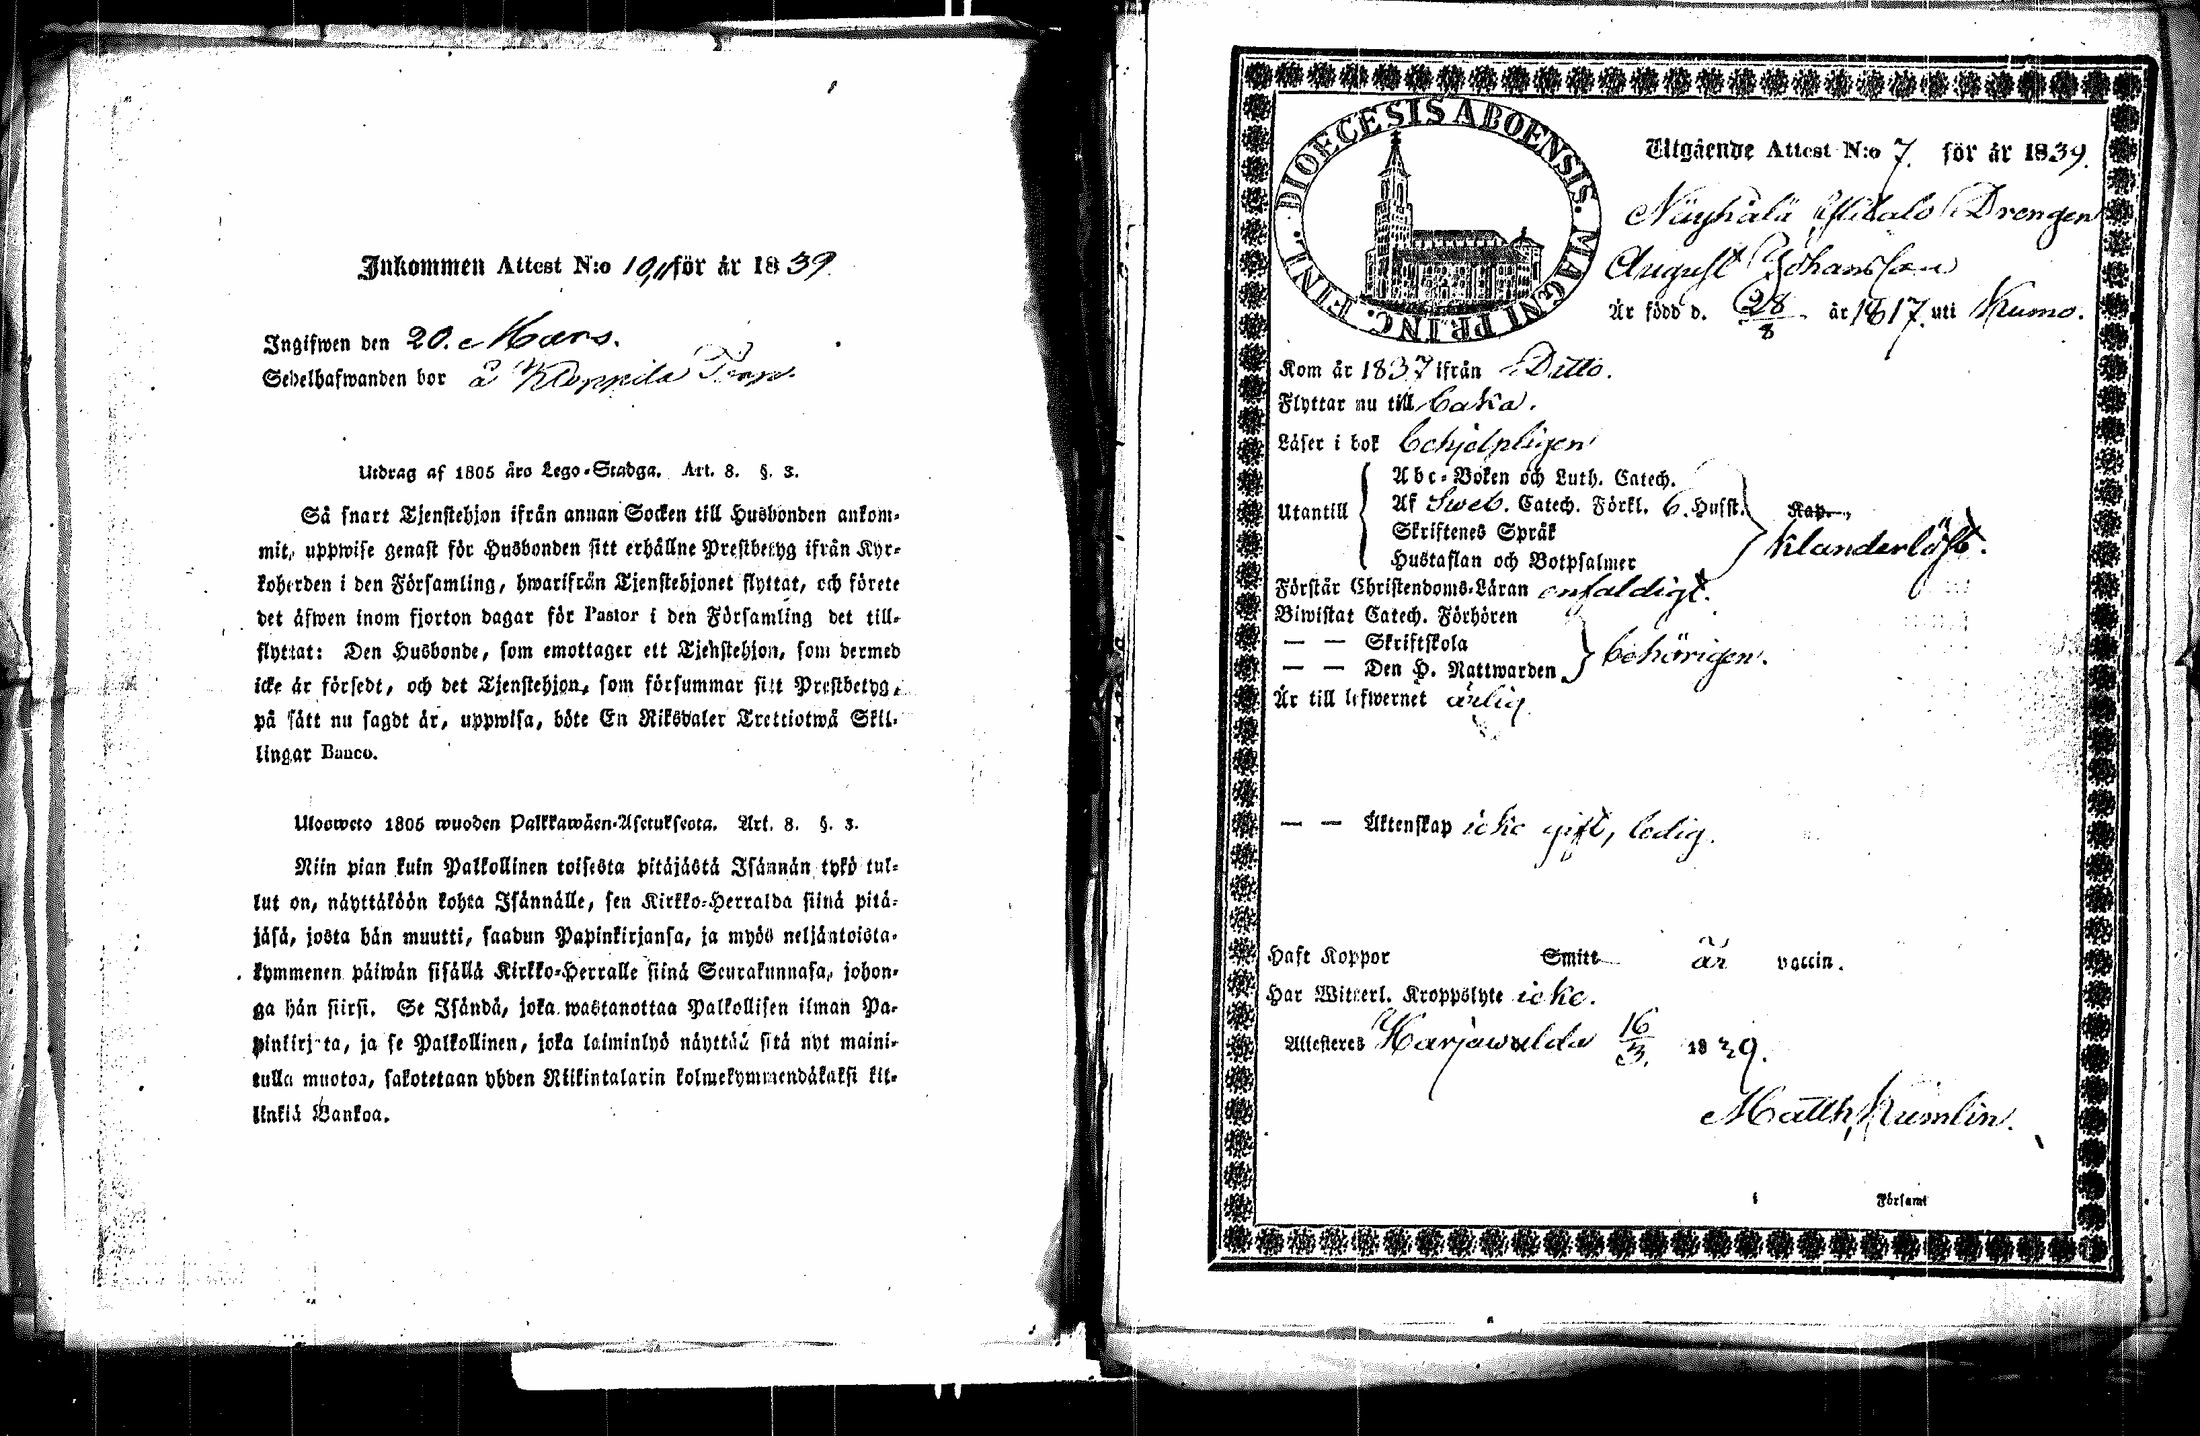 Inkommen Attest N:o 10, för år 1839.
Ingifwen den 20. Mars.
Sedelhafwanden bor å Kloppila
Utdrag af 1805 åro Lego-Stadga. Art. 8. §. 3.
Så snart Tjenstehjon ifrån annan Socken till Husbonden ankom-
mit, uppwise genast för Husbonden sitt erhållne Prestbetyg ifrån Kyr-
koherden i den Församling, hwarifrån Tjenstehjonet flyttat, och förete
det äfwen inom fjorton dagar för Pastor i den Församling det till-
flyttat: Den Husbonde, som emottager ett Tjenstehjon, som dermed
icke är försedt, och det Tjenstehjon, som försummar sitt Prestbetyg,
på sätt nu sagdt är, uppwisa, böte En Riksdaler Trettiotwå Skil-
lingar Banco.
Ulosweto 1805 wuoden Palkkawäen-Asetuksesta. Art. 8. §. 3.
Niin pian kuin Palkollinen toisesta pitäjästä Isännän tykö tul-
lut on, näyttäköön kohta Isännälle, sen Kirkko-Herralda siinä pitä-
jäsä, josta hän muutti, saadun Papinkirjansa, ja myös neljäntoista-
kymmenen päiwän sisällä Kirkko-Herralle siinä Seurakunnasa, johon-
ga hän siirsi. Se Isändä, joka wastanottaa Palkollisen ilman Pa-
pinkirjata, ja se Palkollinen, joka laiminlyö näyttää sitä nyt maini-
tulla muotoa, sakotetaan yhden Riikintalarin kolmekymmendäkaksi kil-
linkiä Bankoa.
DIOECESIS ABOENSIS. MAGNI PRINC. FINL.
Utgående Attest N:o 7. för år 1839.
Drengen
August Johansson
Är född d. 28/8. år 1817. uti Kumo.
Kom år 1837 ifrån Ditto.
Flyttar nu till
Läser i bok behjelpligen
Abc-Boken och Luth. Catech.
Utantill Af Sweb. Catech. Förkl. 6. Husst. Kap.
Skriftenes Språk klanderlöst.
Hustaflan och Botpsalmer
Förstår Christendoms-Läran enfaldigt.
Biwistat Catech. Förhören
— — Skriftskola behörigen.
— — Den H. Nattwarden
Är till lefwernet ärlig
— — Äktenskap icke gift, ledig.
Haft Koppor Smitt är vaccin.
Har Witterl. Kroppslyte icke.
Attesteres Harjawalda 16/3. 1839.
Matth Kumlin.
i Församl